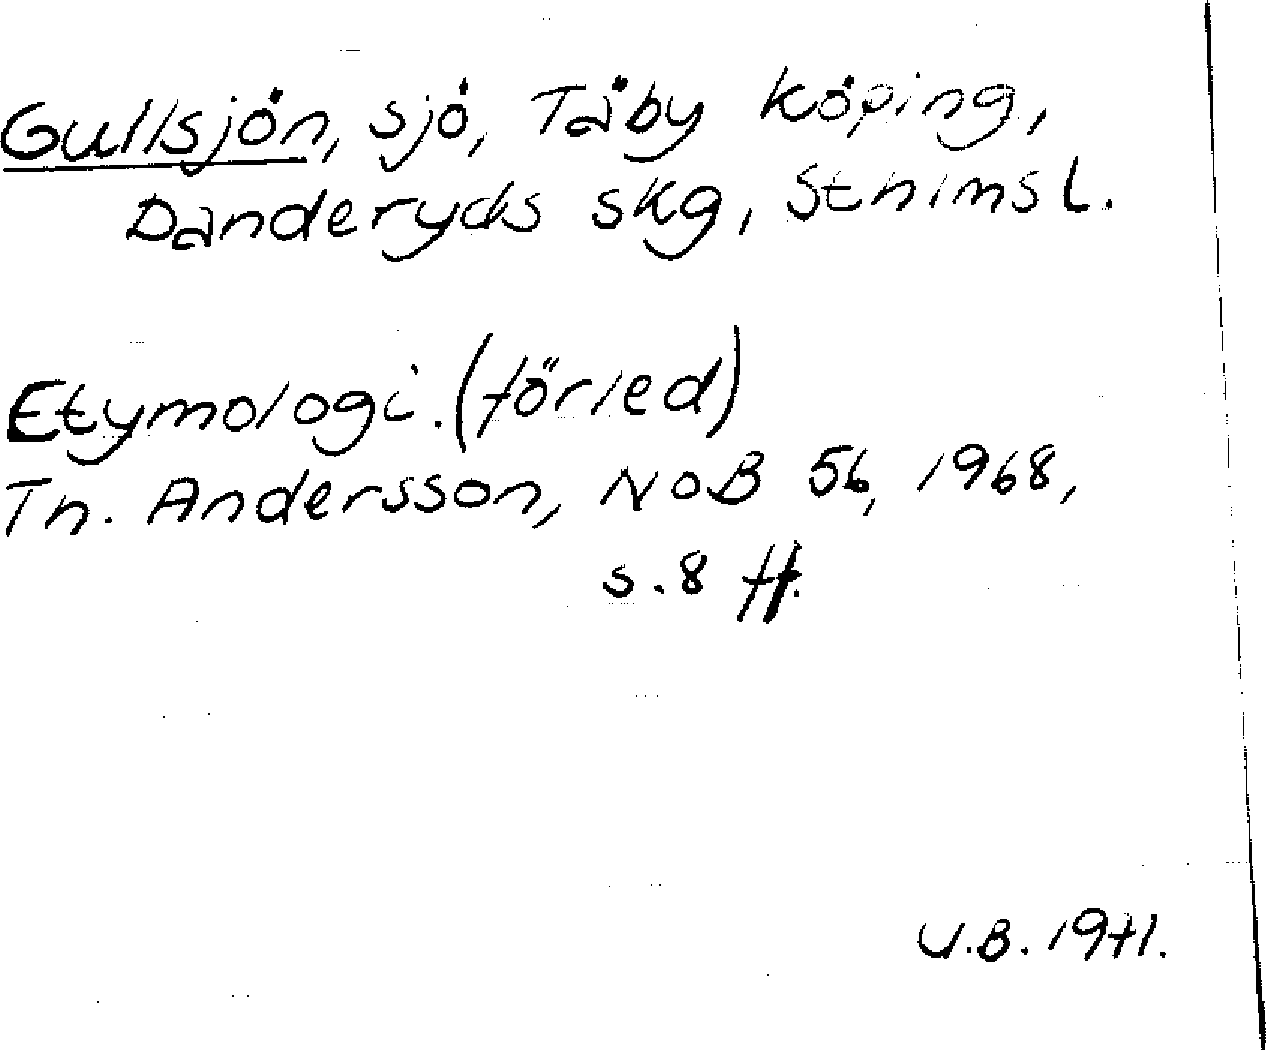 Gullsjön, sjö, Täby köping,
Danderyds skg, Sthlms l.
Etymologi. (förled)
Th. Andersson, NoB 56, 1968,
s. 8 ff.
U.B. 1971.